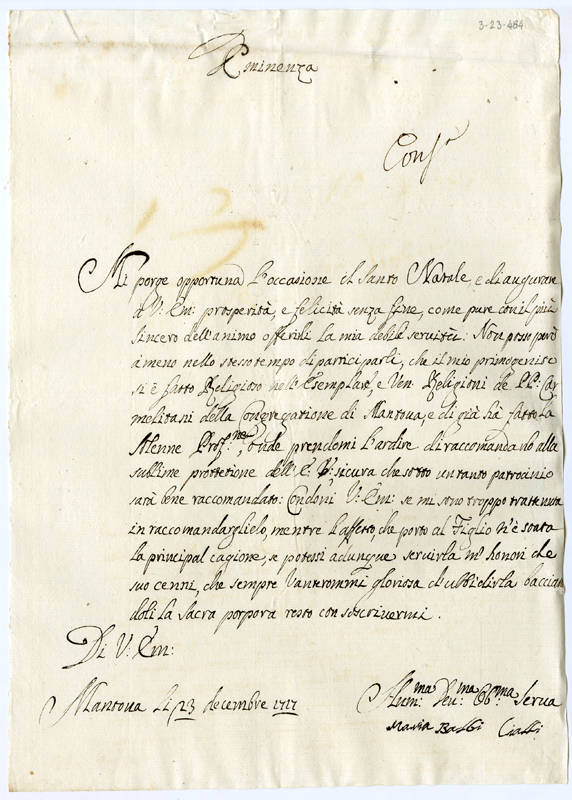 3-23-484
Eminenza
Mi porge opportuna l'occasione il Santo Natale, e di augurare
à V: Em: prosperità, e felicità senza fine, come pure con il più
sincero dell'animo offerirli la mia debile servitù: Non posso però
à meno nello stesso tempo di participarli, che il mio primogenito
si è fatto Religioso nell'Esemplare, e Ven. Religioni de PP: Car
melitani della Congregatione di Mantova, e di già hà fatto la
solenne Prof.ne, onde prendomi l'ardire di raccomandarlo alla
sublime prottetione dell'E: V: sicura che sotto un tanto patrocinio
sarà bene raccomandato: Condoni V: Em: se mi sono troppo trattenuta
in raccomandarglielo, mentre l'affetto, che porto al Figlio n'è stata
la principal cagione, se potessi adunque servirla m'honori che
suo cenni, che sempre vanterommi gloriosa di ubbidirla baccian
doli la Sacra porpora resto con soscrivermi.
Di V: Em:
Mantova li 23 decembre 1717
Hum:ma Deu:ma Ob:ma Serva
Maria Balbi